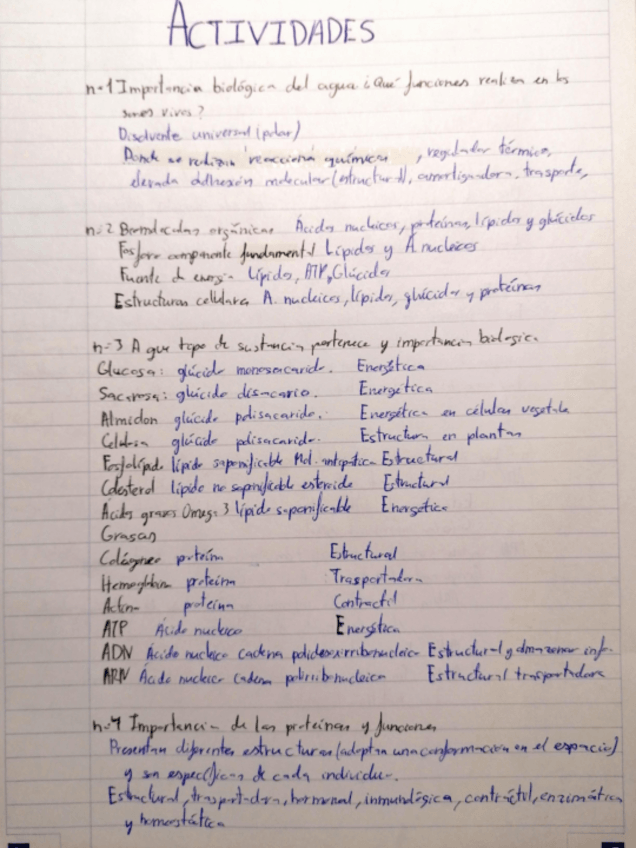 ACTIVIDADES
n.1 Importancia biológica del agua ¿Qué funciones realiza en los
seres vivos?
Disolvente universal (polar)
Donde se realizan reacciones químicas, regulador térmico,
elevada adhesión molecular (estructural), amortiguadora, trasporte,
n.2 Biomoléculas orgánicas Ácidos nucleicos, proteínas, lípidos y glúcidos
Fosforo componente fundamental Lípidos y A nucleicos
Fuente de energía Lípidos, ATP, Glúcidos
Estructuras celulares A. nucleicos, lípidos, glúcidos y proteínas
n.3 A que tipo de sustancia pertenece y importancia biologica
Glucosa: glúcido monosacarido. Energética
Sacarosa: glúcido disacario. Energética
Almidon glúcido polisacarido. Energética en células vegetale
Celulosa glúcido polisacarido. Estructura en plantas
Fosfolípido lípido saponificable Mol. antipática Estructural
Colesterol lípido no saponificable esteroide Estructural
Ácidos grasos Omega 3 lípido saponificable Energética
Grasas
Colágeno proteína Estructural
Hemoglobina proteina Trasportadora
Actina proteina Contráctil
ATP Ácido nucleico Energética
ADN Ácido nucleico cadena polidesoxirribonucleico Estructural y almazenar info.
ARN Ácido nucleico cadena polirribonucleica Estructural trasportadora
n.4 Importancia de las proteínas y funciones
Presentan diferentes estructuras (adoptan una conformación en el espacio)
y son específicas de cada individuo.
Estructural, trasportadora, hormonal, inmunológica, contráctil, enzimática
y homostática